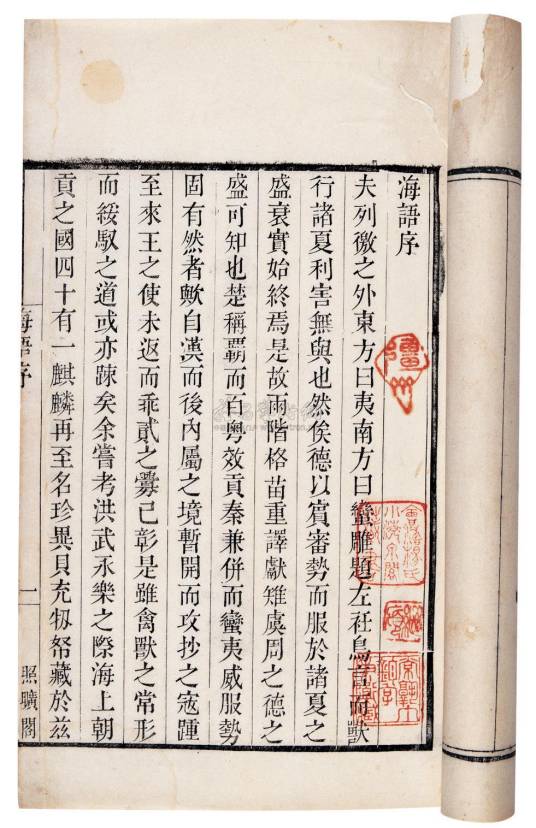 海語序
夫列徼之外東方曰夷南方曰蠻雕題左衽鳥言而獸
行諸夏利害無與也然俟德以賓審勢而服於諸夏之
盛衰實始終焉是故兩階格苗重譯獻雉虞周之德之
盛可知也楚稱覇而百粤效貢秦兼併而蠻夷威服勢
固有然者歟自漢而後內屬之境暫開而攻抄之寇踵
至來王之使未返而乖貳之釁已彰是雖禽獸之常形
而綏馭之道或亦踈矣余嘗考洪武永樂之際海上朝
貢之國四十有一麒麟再至名珍異貝充牣帑藏於兹
海語序
一
照曠閣